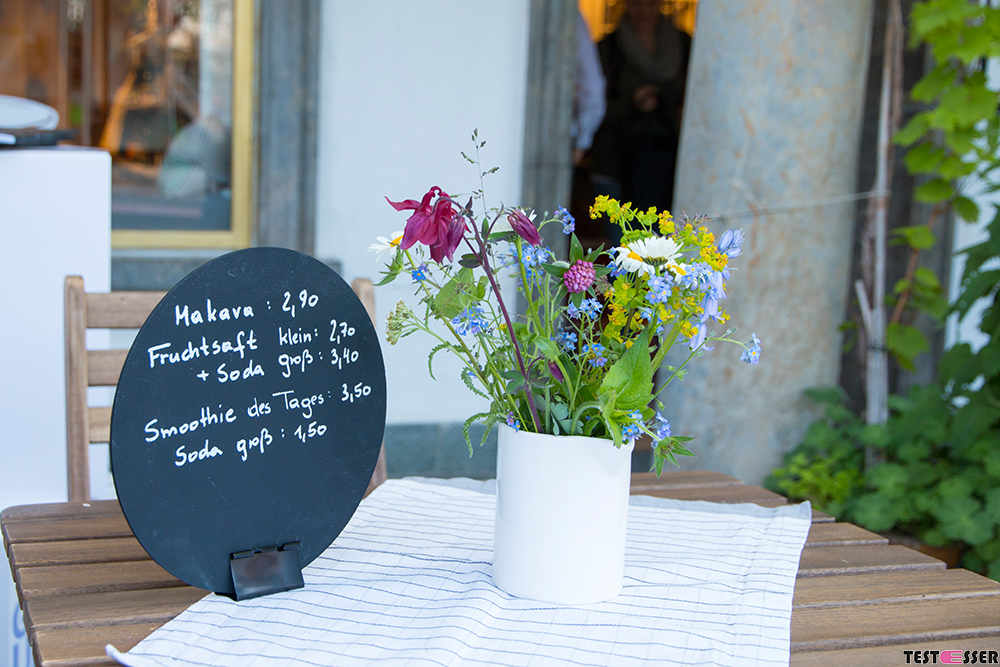 Makava : 2,90
Fruchtsaft klein : 2,70
+ Soda groß : 3,40
Smoothie des Tages : 3,50
Soda groß : 1,50
TESTESSER